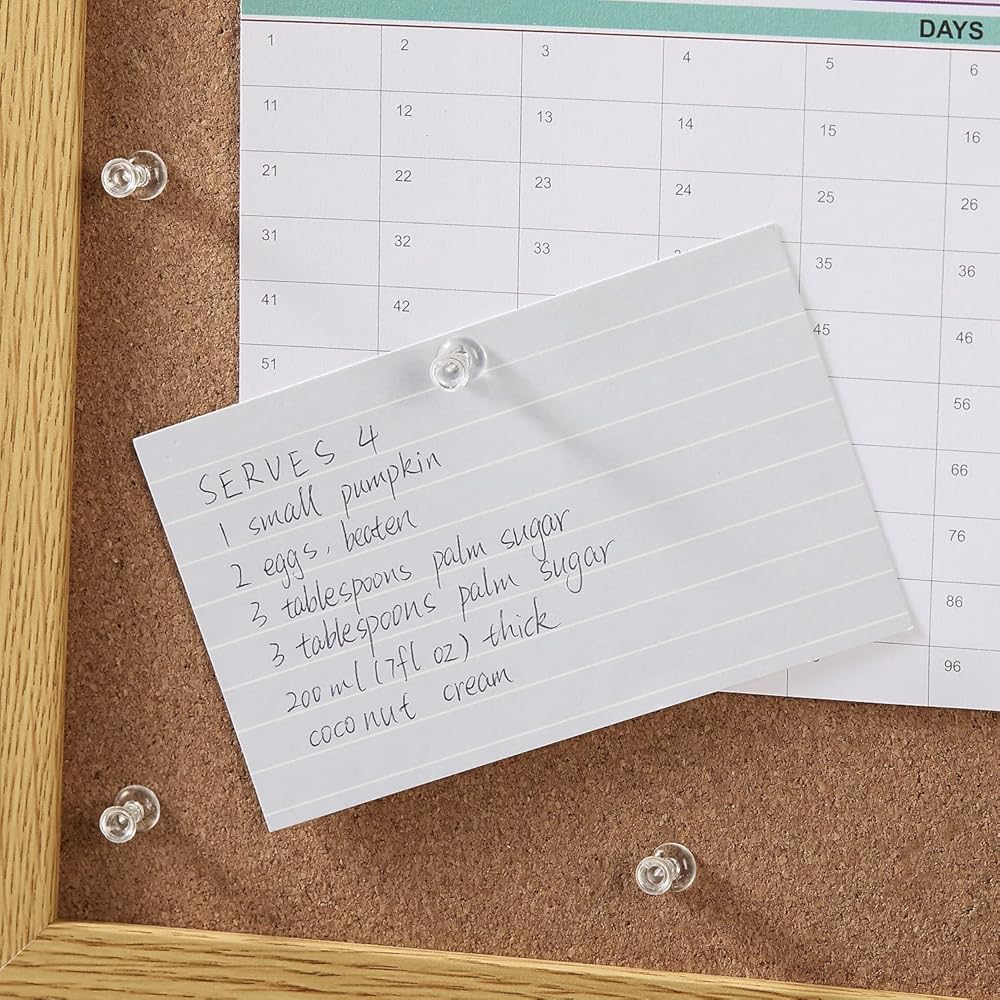 DAYS
1 2 3 4 5 6
11 12 13 14 15 16
21 22 23 24 25 26
31 32 33 35 36
41 42 45 46
51 56
66
76
86
96
SERVES 4
1 small pumpkin
2 eggs, beaten
3 tablespoons palm sugar
3 tablespoons palm sugar
200 ml (17fl oz) thick
coconut cream